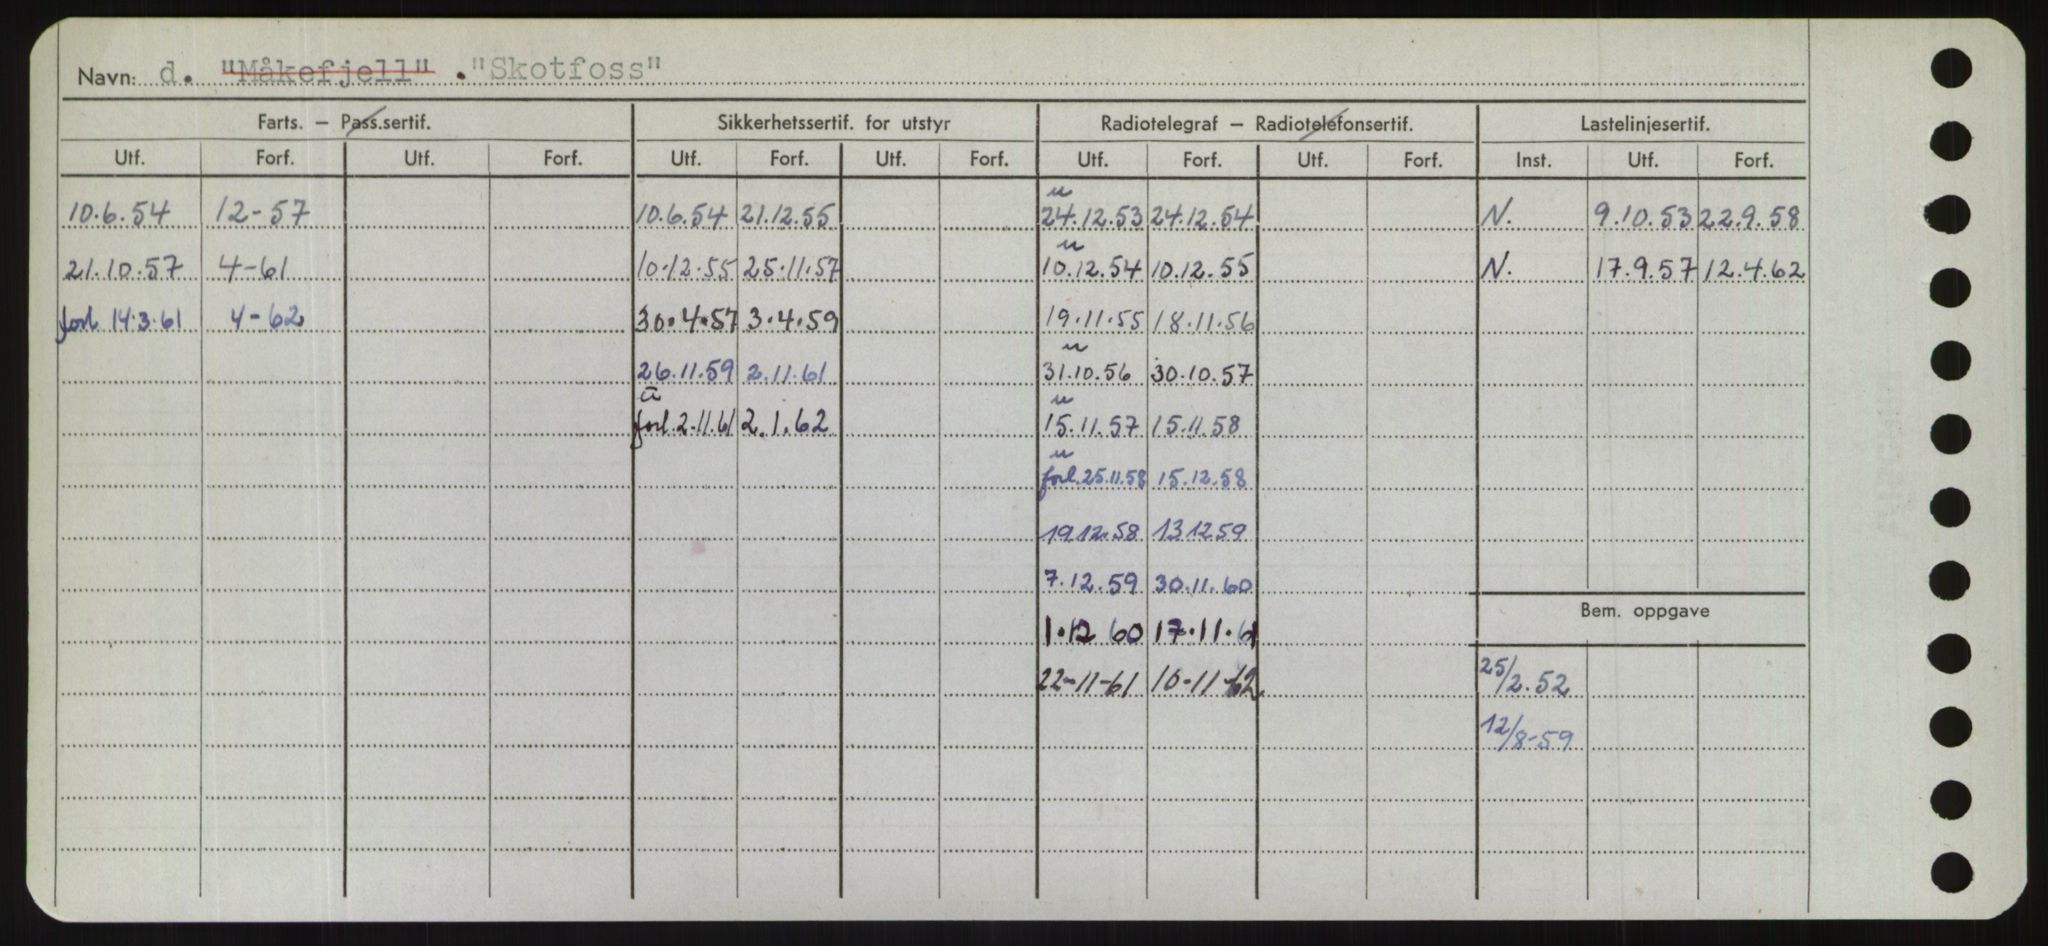 Navn: d. "Måkefjell" . "Skotfoss"
Farts. — Pass.sertif. Sikkerhetssertif. for utstyr Radiotelegraf — Radiotelefonsertif. Lastelinjesertif.
Utf. Forf. Utf. Forf. Utf. Forf. Utf. Forf. Utf. Forf. Utf. Forf. Inst. Utf. Forf.
u
10.6.54 12-57 10.6.54 21.12.55 24.12.53 24.12.54 N. 9.10.53 22.9.58
u
21.10.57 4-61 10.12.55 25.11.57 10.12.54 10.12.55 N. 17.9.57 12.4.62
forl. 14.3.61 4-62 30.4.57 3.4.59 19.11.55 18.11.56
u
26.11.59 2.11.61 31.10.56 30.10.57
u
forl. 2.11.61 2.1.62 15.11.57 15.11.58
u
forl. 25.11.58 15.12.58
19.12.58 13.12.59
7.12.59 30.11.60
Bem. oppgave
1.12 60 17.11.61
22-11-61 10-11-62
25/2.52
12/8-59